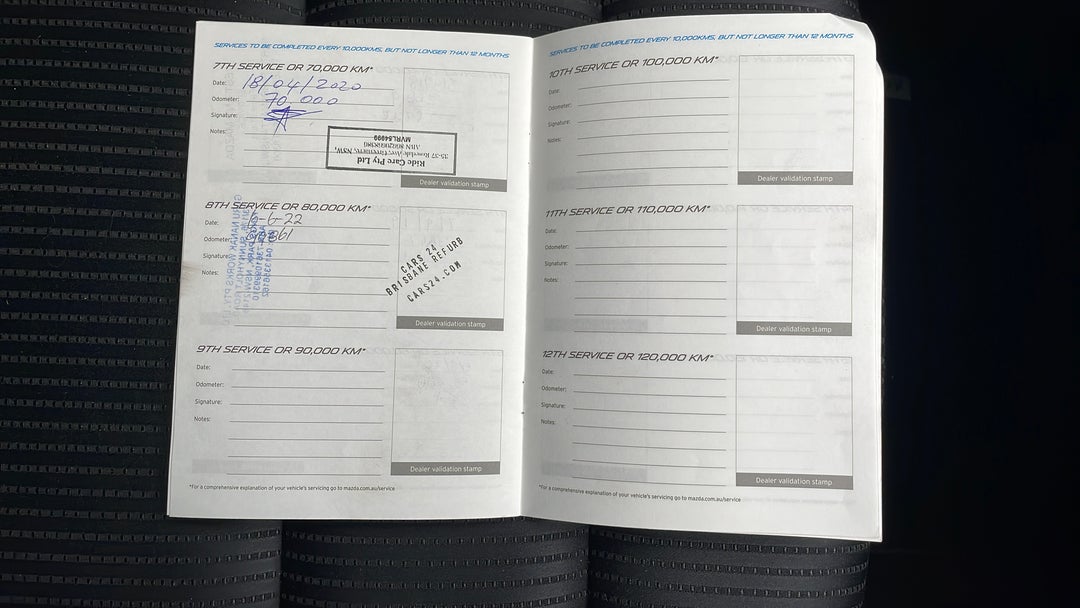 SERVICES TO BE COMPLETED EVERY 10,000KMS, BUT NOT LONGER THAN 12 MONTHS
7TH SERVICE OR 70,000 KM*
Date: 18/04/2020
Odometer: 70,000
Signature:
Notes:
Ride Care Pty Ltd
MVRL54999
Dealer validation stamp
8TH SERVICE OR 80,000 KM*
Date: 6-22
Odometer:
Signature:
Notes:
CARS 24
BRISBANE REFURB
CARS24.COM
Dealer validation stamp
9TH SERVICE OR 90,000 KM*
Date:
Odometer:
Signature:
Notes:
Dealer validation stamp
*For a comprehensive explanation of your vehicle's servicing go to mazda.com.au/service
SERVICES TO BE COMPLETED EVERY 10,000KMS, BUT NOT LONGER THAN 12 MONTHS
10TH SERVICE OR 100,000 KM*
Date:
Odometer:
Signature:
Notes:
Dealer validation stamp
11TH SERVICE OR 110,000 KM*
Date:
Odometer:
Signature:
Notes:
Dealer validation stamp
12TH SERVICE OR 120,000 KM*
Date:
Odometer:
Signature:
Notes:
Dealer validation stamp
*For a comprehensive explanation of your vehicle's servicing go to mazda.com.au/service